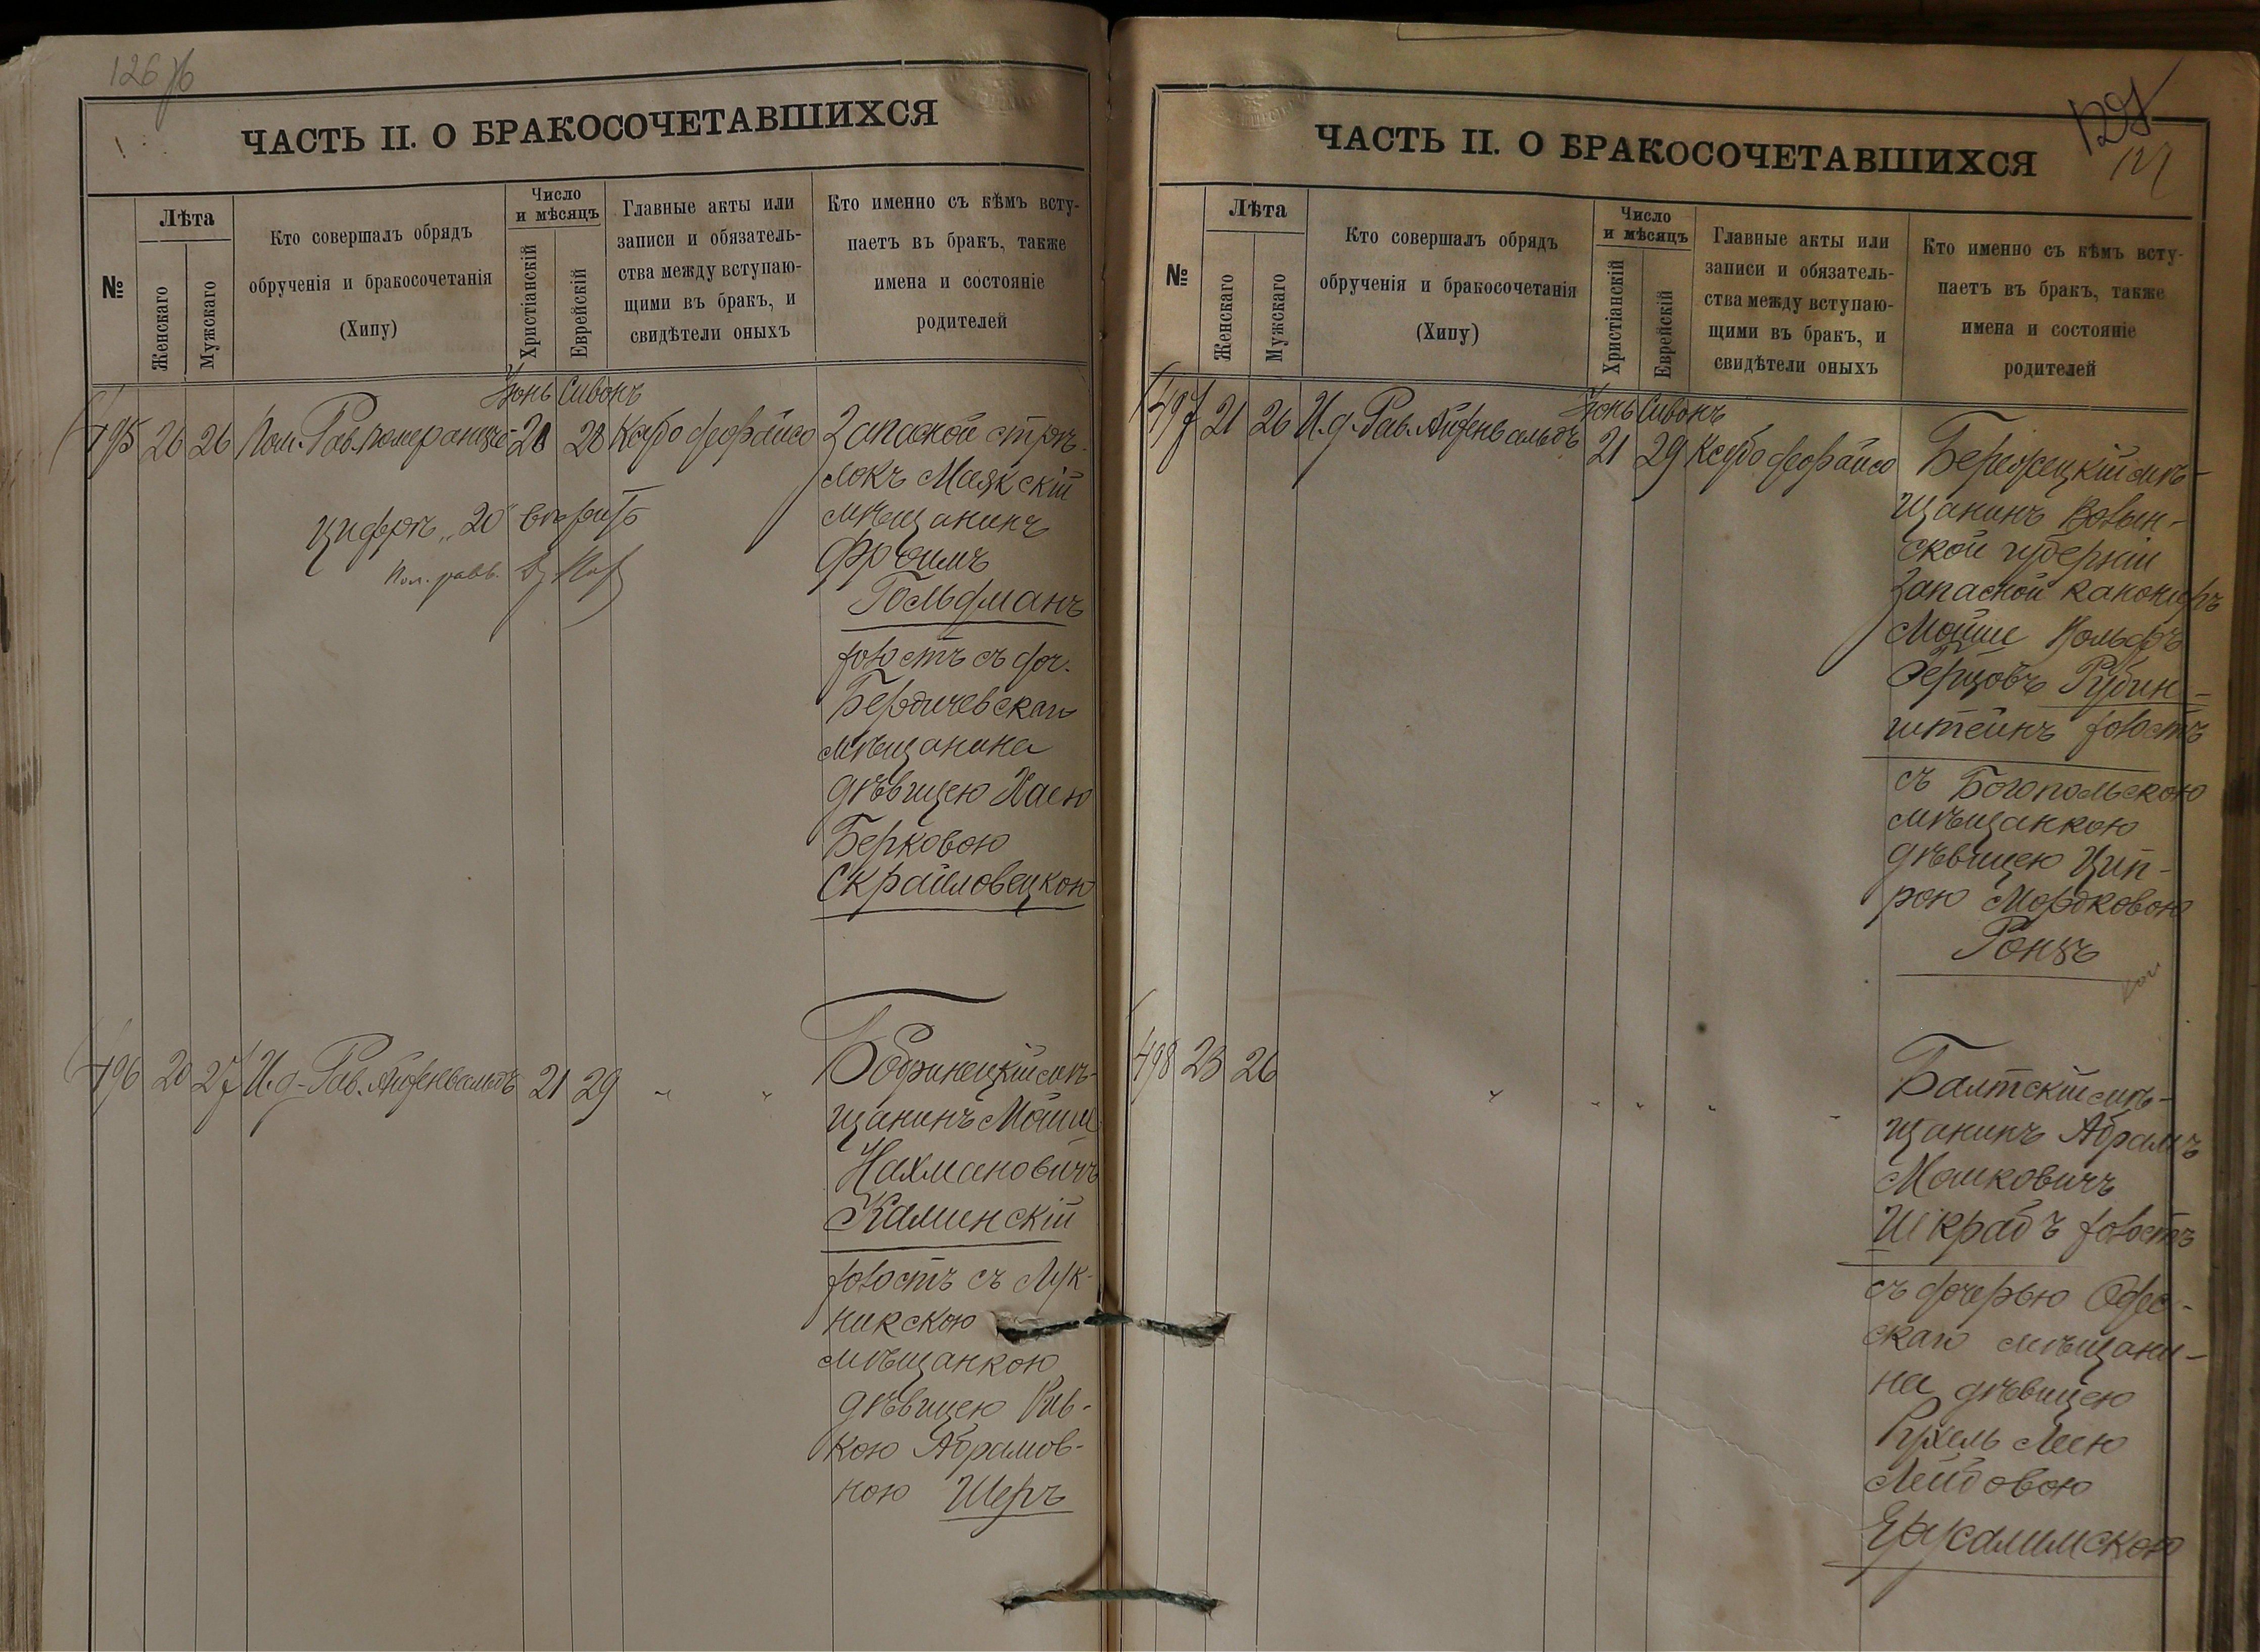 126 об
ЧАСТЬ II. О БРАКОСОЧЕТАВШИХСЯ
№
Лѣта
Женскаго
Мужскаго
Кто совершалъ обрядъ
обрученія и бракосочетанія
(Хипу)
Число
и мѣсяцъ
Христіанскій
Еврейскій
Главные акты или
записи и обязатель-
ства между вступаю-
щими въ бракъ, и
свидѣтели оныхъ
Кто именно съ кѣмъ всту-
паетъ въ бракъ, также
имена и состояніе
родителей
Іюнь Сивонъ
495 26 26 Пом. Рав. Померанцъ 20 28 Ксубо деорайсо
Запасной стрѣ-
локъ Маякскій
мѣщанинъ
Фроимъ
Гольдманъ
холостъ съ доч.
Бердичевскаго
мѣщанина
дѣвицею Хаею
Берковою
Скраиловецкою
цифръ „20" вѣрить
Пом. рав.
496 20 27 И. д. Рав. Айзенвальдъ 21 29 " "
Бобринецкій мѣ-
щанинъ Мойше
Нахмановичъ
Каминскій
холостъ съ Лук-
никскою
мѣщанкою
дѣвицею Рив-
кою Абрамов-
ною Шеръ
127
ЧАСТЬ II. О БРАКОСОЧЕТАВШИХСЯ
№
Лѣта
Женскаго
Мужскаго
Кто совершалъ обрядъ
обрученія и бракосочетанія
(Хипу)
Число
и мѣсяцъ
Христіанскій
Еврейскій
Главные акты или
записи и обязатель-
ства между вступаю-
щими въ бракъ, и
свидѣтели оныхъ
Кто именно съ кѣмъ всту-
паетъ въ бракъ, также
имена и состояніе
родителей
Іюнь Сивонъ
497 21 26 И. д. Рав. Айзенвальдъ 21 29 Ксубо деорайсо
Бережецкій мѣ-
щанинъ Волын-
ской губерніи
Запасной канониръ
Мойше Вольфъ
Герцовъ Рубин-
штейнъ холостъ
съ Богопольскою
мѣщанкою
дѣвицею Цип-
рою Мордковою
Ронзъ
498 23 26 " " " " "
Балтскій мѣ-
щанинъ Абрамъ
Мошковичъ
Шкрабъ холостъ
съ дочерью Одес-
скаго мѣщани-
на дѣвицею
Рухель Леею
Лейбовою
Ерусалимскою